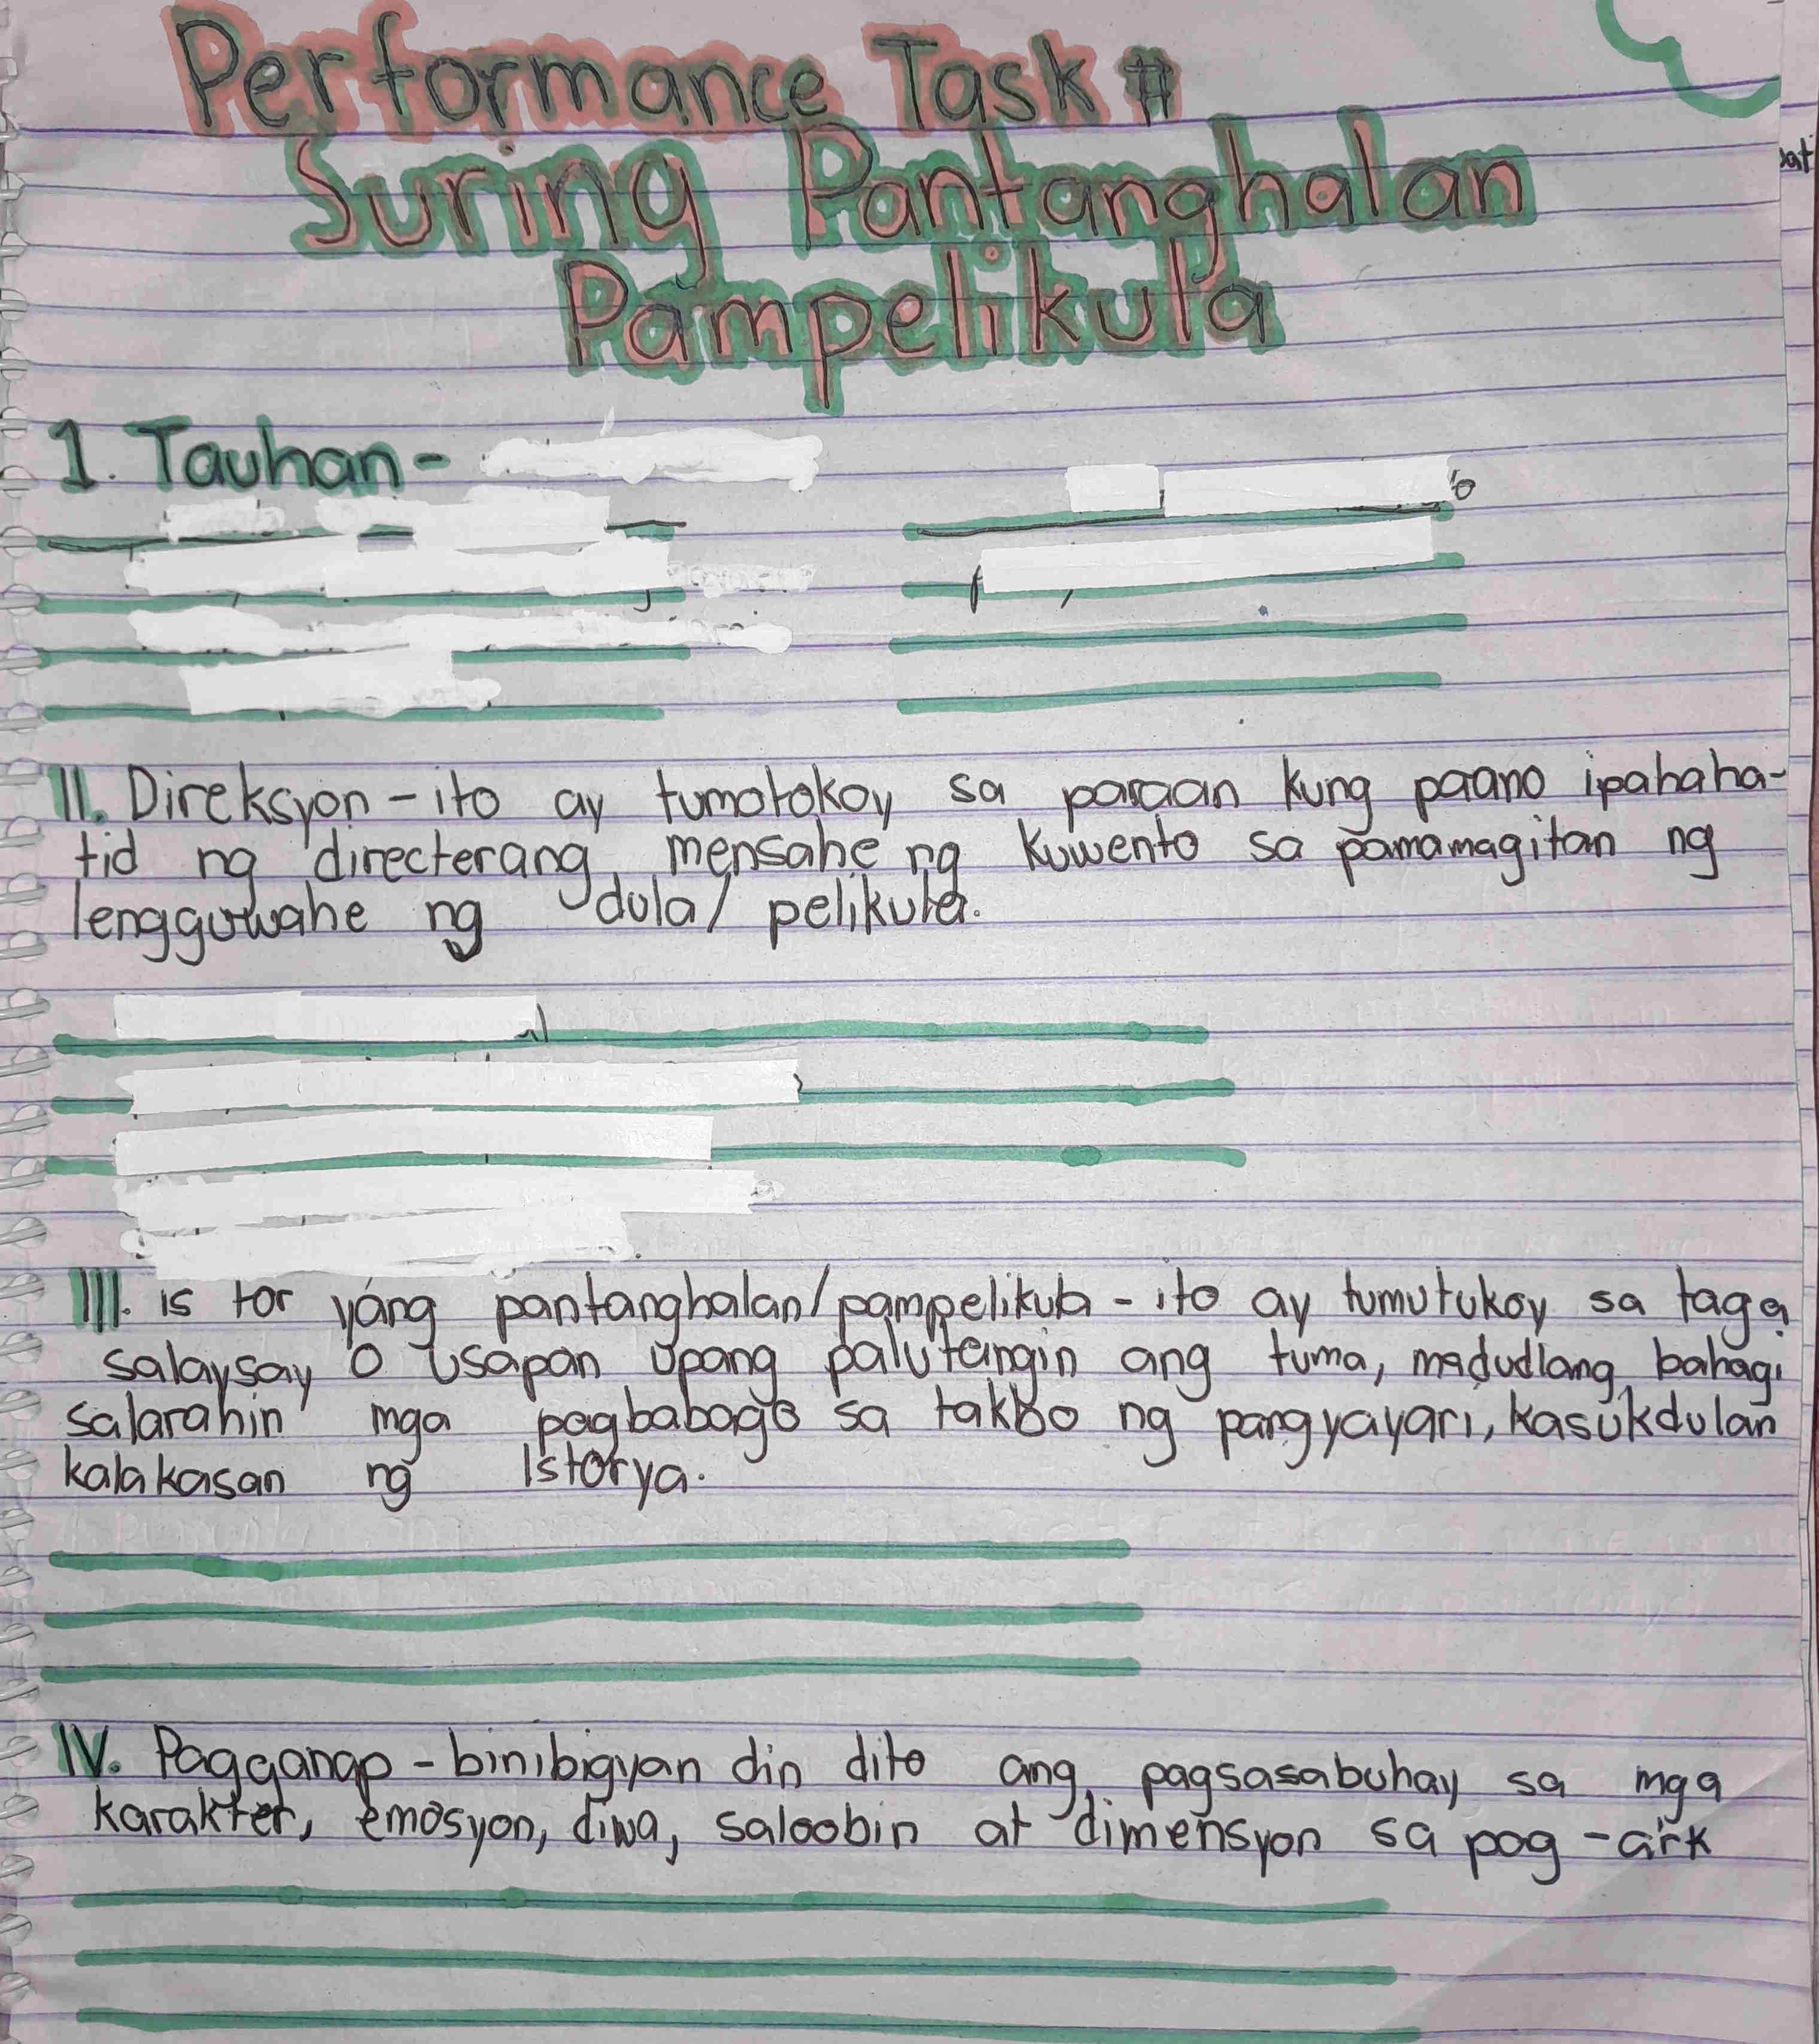 Performance Task #
Suring Pantanghalan
Pampelikula
1. Tauhan-
II. Direksyon - ito ay tumotokoy sa paraan kung paano ipahaha-
tid ng directerang mensahe ng kuwento sa pamamagitan ng
lengguwahe ng dula/ pelikula.
III. is tor yang pantanghalan/pampelikula - ito ay tumutukoy sa taga
salaysay o usapan upang palutangin ang tuma, madudlang bahagi
salarahin mga pagbabago sa takbo ng pangyayari, kasukdulan
kalakasan ng Istorya.
IV. Paggangap - binibigyan din dito ang pagsasabuhay sa mga
karakter, emosyon, diwa, saloobin at dimensyon sa pag -ark